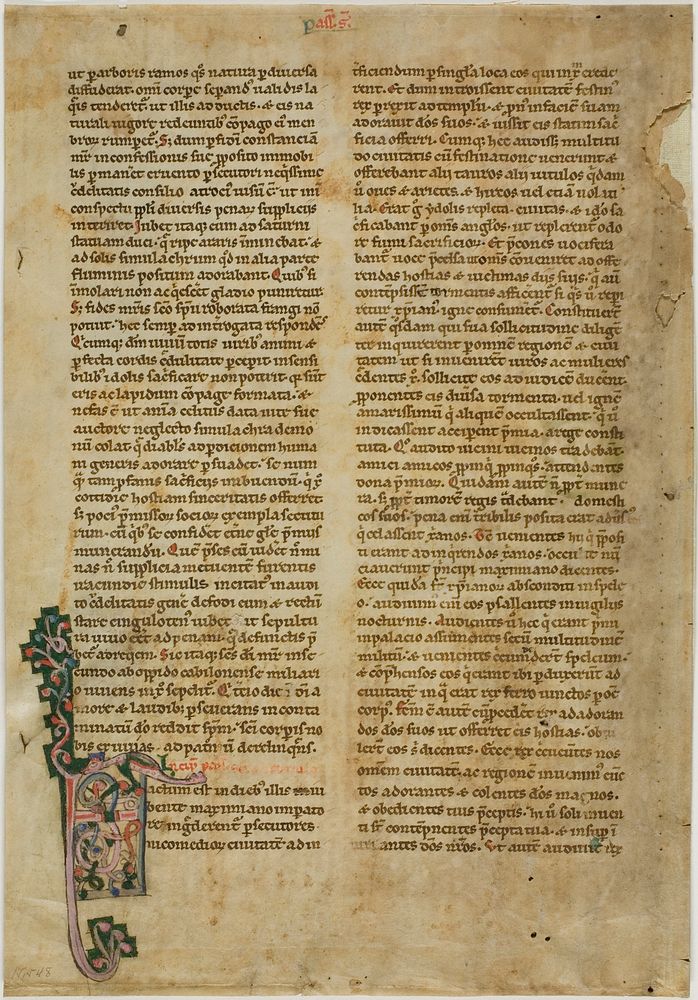 Pass. S.
ut p arboris ramos qͥs natura p diuersa
diffuderat. omi corpe separandͦ ualidis la
qͥs tenderet᷑. ut illis aduectis. & eis na
turali uigore redeuntibꝰ cōpago eiꝰ men
broꝝ rumperet᷑. Sꝫ dum p fidei constanciā
mr̄ in confessionis sue pposito immobi
lis pmaneret
crudelitatis consilio atrociꝰ uisū ē. ut in
conspectu ppli diuersis penaꝝ suppliciis
interiret. Jubet itaqꝫ eum ad saturni
statuam duci. q̄ ripe araris īminebat. &
ad solis simulachrum qd̄ in alia parte
fluminis positum adorabant. Quibꝰ si
imolari non acqͥesceret gladio puniretur.
Sꝫ fides mr̄is sc̄o spū roborata frangi non
potuit. hec semp ad interrogata respondēs.
Quicumqꝫ dīm uiuū totis uiribꝰ animi &
pfecta cordis credulitate pcepit insensi
bilibꝰ idolis sacrificare non poterit. q̄ sunt
eris ac lapidum cōpage formata. &
nefas ē ut anīa celitus data uite sue
auctore neglecto simulachra demo
nū colat. q̄ diabolꝰ ad pdicionem huma
ni generis adorare psuadet. Se num
quam pfanis sacrificiis imbuendū. qͥ xp̄o
cottidie hostiam sinceritatis offerret.
si poci p̄missoꝝ socioꝝ exempla secutu
rum. cū qͥbꝰ se confidēt eterne glē p̄miis
munerandū. Que p̄ses cū uidet nͨ mi
nas nͨ supplicia metuentē furentis
iracundie stimulis incitatꝰ inaudi
to crudelitatis gen̄e defodi eum & rectū
stare cingulotenꝰ iubet. ut sepultu
ra uiuo cēt ad penam. q̄ defunctis p̄
bet᷑ ad requiem. Sic itaqꝫ sc̄s dī mr̄ in se
cundo ab oppido cabilonense miliari
o uiuens in xp̄o sepelitᷣ. Qͥ tercio die ī dī a
more & laudibꝰ pseuerans incorta
minatum dō reddit spm̄. sc̄i corpis no
bis exuuias. ad patriū derelinquēs.
Incip̄ pas
Factum est in diebꝰ illis iu
bente maximiano imperato
re ingrederent᷑ psecutores
nicomedioꝝ ciuitatē ad in
tficiendum p singula loca eos qui in xp̄m crede
rent. Et dum introissent ciuitatē festinꝰ
rex prexit ad templū. & pnꝰ in faciē suam
adorauit deos suos. & iussit eis statim sacͥ
ficia offerri. Cumqꝫ hec audissꝫ multitu
do ciuitatis cū festinatione uenerunt &
offerebant alij tauros alij uitulos qdam
uꝰ oues & arietes. & hircos uel etiam uolati
lia. Erat gͦ ydolis repleta ciuitas. & ido sac
ficabant p om̄s anglos. ut replerent᷑ odo
re fumi sacrificioꝝ. Et p̄cones uocifera
bant᷑ uoce p̄celsa ut om̄s cōuenirēt ad offe
rendas hostias & uictimas diis suis. qͥ aū
contēpsissꝫ tormentis afficeret᷑. si qͥs uͦ repi
retur xp̄ianꝰ igne consumeret᷑. Constituerūt
autē qͦsdam qui sua sollicitudine diligē
ter inquirerent p omnē regionē & ciui
tatem ut si inuenirēt uiros ac mulieres
credentes xp̄o. sollicite eos ad iudicē ducerent.
Pponentes eis diūsa tormenta. uel ignē
amarissimū qͥ aliquē occultassent. qͥ uͦ
indicassent acciperent p̄mia. a rege consti
tuta. Qͦ audito uicini uicinos tradebant.
amici amicos ppinqͥ ppinqͦs. attendentes
dona p̄mioꝝ. Quidam autē nͨ ppt̄ mune
ra. sꝫ ppt̄ timorē regis tͣdebant domesti
cos suos. pena enī tribilis posita erat adūsꝰ
qͥ celassent xp̄ianos. Tc̄ uenientes hij qͥ pposi
ti erant ad inqͥrendos xp̄ianos
ciauerunt p̄ncipi maximiano dicentes.
Ecce quidā sͭ xp̄ianoꝝ absconditi in spele
o. audiuimꝰ eni eos psallentes in uigiliis
nocturnis. Audientes uͦ hec qͥ erant p̄mi
in palacio assūmentes secū multitudinē
militū. & uenientes circumdedert speluncam.
& cōp̄hensos eos qͥ erant ibi pduxerūt ad
ciuitatē in qͣ erat rex ferro uinctos p toc
corpꝰ. rex ad adoran
dos deos suos ut offerret eis hostias.
lert eos dicentes. Ecce rex circueuntes nos
omem ciuitatē. ac regionē inuenimꝰ cūc
tos adorantes & colentes deos magnos.
& obedientes tuis p̄ceptis. hij uͦ soli inuen
ti sͭ contēpnentes p̄cepta tua. & insup
antes deos nr̄os. Ut autē audiuit rex
N.N 48